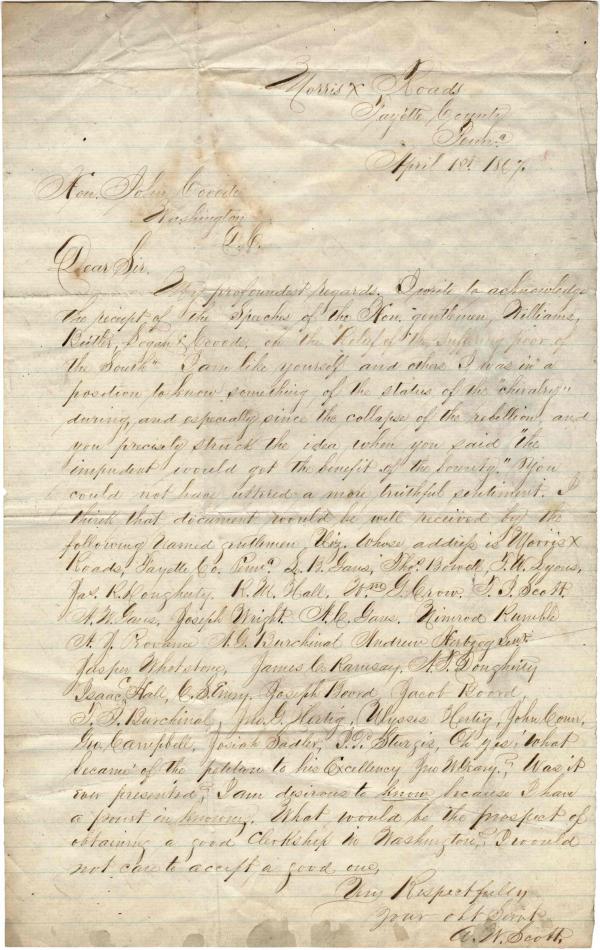 Morris X Roads
Fayette County
Penn.a
April 18t 1867.
Hon. John Covode
Washington
D.C.
Dear Sir.
My profoundest regards. I write to acknowledge
the receipt of the Speeches of the Hon. gentlemen, Williams,
Butler, Logan & Covode, on the Relief of "the suffering poor of
the South" I am like yourself and others I was in a
position to know something of the status of the "chivalry"
during, and especially since the collapse of the rebellion, and
you precisely struck the idea when you said "the
impudent would got the benefit of the bounty." You
could not have uttered a more truthful sentiment. I
think that document would be well received by the
following named gentlemen Viz. Whose address is Morris X
Roads, Fayette Co. Penn.a L. B. Gans, Thos. Bowck, J. W. Lyons,
Jas. R. Dougherty. R. M. Hall. Wm. G. Crow. T. J. Scott
A. W. Gans, Joseph Wright. A. C. Gans. Nimrod Rumble
A. J. Provance A. G. Burchinal Andrew Hertzog
Jasper Whetstone, James C. Ramsay, A. F. Dougherty
Isaac Hall, C. S. Emry, Joseph Boord, Jacob Boord,
T. F. Burchinal, Jno. G. Hertig, Ulysses Hertig, John
Geo. Campbell, Josiah Sadler, Sturgis, Oh yes! what
became of the petition to his Excellency Jno W Geary?, Was it
ever presented? I am desirous to know, because I have
a point in knowing. What would be the prospect of
obtaining a good Clerkship in Washington? I would
not care to accept a good one,
Very Respectfully
Your obt Servt
A. W. Scott